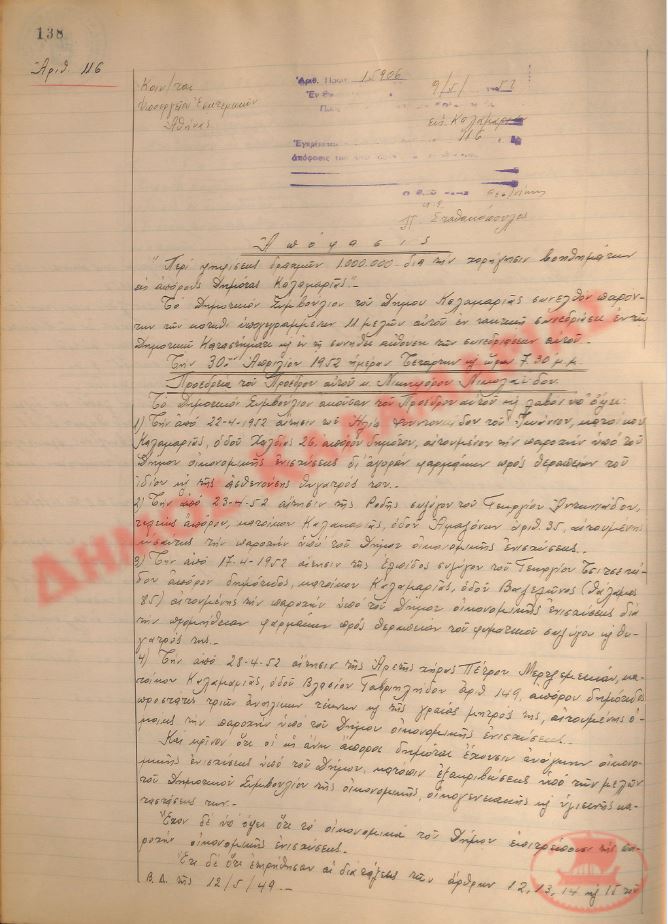 138
Ἀριθ. 116
Κοιν/ται
Ὑπουργεῖον Ἐσωτερικῶν
Ἀθήνας
Ἀριθ. Πρωτ. 15906
Ἐν Θ 9/5/ 52
Εἰς Καλαμαριὰν
116
Ἐγκρίνεται
ἀπόφασις
Π. Σταθακόπουλος
Ἀπόφασις
"Περὶ ψηφίσεως δραχμῶν 1.000.000 διὰ τὴν χορήγησιν βοηθημάτων
εἰς ἀπόρους Δημότας Καλαμαριᾶς".-
Τὸ Δημοτικὸν Συμβούλιον τοῦ Δήμου Καλαμαριᾶς συνελθὸν παρόν-
των τῶν κάτωθι ὑπογεγραμμένων 11 μελῶν αὐτοῦ ἐν τακτικῇ συνεδριάσει ἐν τῷ
Δημοτικῷ Καταστήματι κ ἐν τῇ συνήθει αἰθούσῃ τῶν συνεδριάσεων αὐτοῦ.
Τὴν 30ην Ἀπριλίου 1952 ἡμέραν Τετάρτην κ ὥραν 7.30 μ.μ.
Προεδρίᾳ τοῦ Προέδρου αὐτοῦ κ. Νικηφόρου Νικολαΐδου.
Τὸ Δημοτικὸν Συμβούλιον ἀκοῦσαν τοῦ Προέδρου αὐτοῦ κ λαβὸν ὑπ' ὄψει:
1) Τὴν ἀπὸ 22-4-1952 αἴτησιν τοῦ Ἠλία τοῦ Ἰωάννου, κατοίκου
Καλαμαριᾶς, ὁδοῦ 26, ἀπόρου δημότου, αἰτουμένου τὴν παροχὴν ὑπὸ τοῦ
Δήμου οἰκονομικῆς ἐνισχύσεως δι' ἀγορὰν φαρμάκων πρὸς θεραπείαν τοῦ
ἰδίου κ τῆς ἀσθενούσης θυγατρός του.-
2) Τὴν ἀπὸ 23-4-52 αἴτησιν τῆς συζύγου τοῦ Γεωργίου
τελείως ἀπόρου, κατοίκου Καλαμαριᾶς, ὁδοῦ Ἀμαζόνων ἀριθ. 35, αἰτουμένης
τὴν παροχὴν ὑπὸ τοῦ Δήμου οἰκονομικῆς ἐνισχύσεως.-
3) Τὴν ἀπὸ 17-4-1952 αἴτησιν τῆς Ἐλπίδος συζύγου τοῦ Γεωργίου
ἀπόρου δημότιδος, κατοίκου Καλαμαριᾶς, ὁδοῦ Βαβυλῶνος (Θάλαμος
85) αἰτουμένης τὴν παροχὴν ὑπὸ τοῦ Δήμου οἰκονομικῆς ἐνισχύσεως διὰ
τὴν προμήθειαν φαρμάκων πρὸς θεραπείαν τοῦ φυματικοῦ συζύγου κ θυ-
γατρός της.-
4) Τὴν ἀπὸ 28-4-52 αἴτησιν τῆς Ἀρετῆς χήρας Πέτρου κα-
τοίκου Καλαμαριᾶς, ὁδοῦ Βλασίου Γαβριηλίδου ἀριθ 149, ἀπόρου δημότιδος
προστάτις τριῶν ἀνηλίκων τέκνων κ τῆς γραίας μητρός της, αἰτουμένης ὁ-
μοίως τὴν παροχὴν ὑπὸ τοῦ Δήμου οἰκονομικῆς ἐνισχύσεως.-
Καὶ κρῖνον ὅτι οἱ ὡς ἄνω ἄποροι δημόται ἔχουσιν ἀνάγκην οἰκονο-
μικῆς ἐνισχύσεως ὑπὸ τοῦ Δήμου, κατόπιν ἐξακριβώσεως ὑπὸ τῶν μελῶν
τοῦ Δημοτικοῦ Συμβουλίου τῆς οἰκονομικῆς, οἰκογενειακῆς κ ὑγιεινῆς κα-
ταστάσεώς των.-
Ἔχον δὲ ὑπ' ὄψει ὅτι τὰ οἰκονομικὰ τοῦ Δήμου ἐπιτρέπουσι τὴν πα-
ροχὴν οἰκονομικῆς ἐνισχύσεως.
Ἔτι δὲ ὅτι ἐτηρήθησαν αἱ διατάξεις τῶν ἄρθρων 12, 13, 14 κ 15 τοῦ
Β.Δ. τῆς 12/5/49.-
ΔΗΜΟΣ ΚΑΛΑΜΑΡΙΑΣ